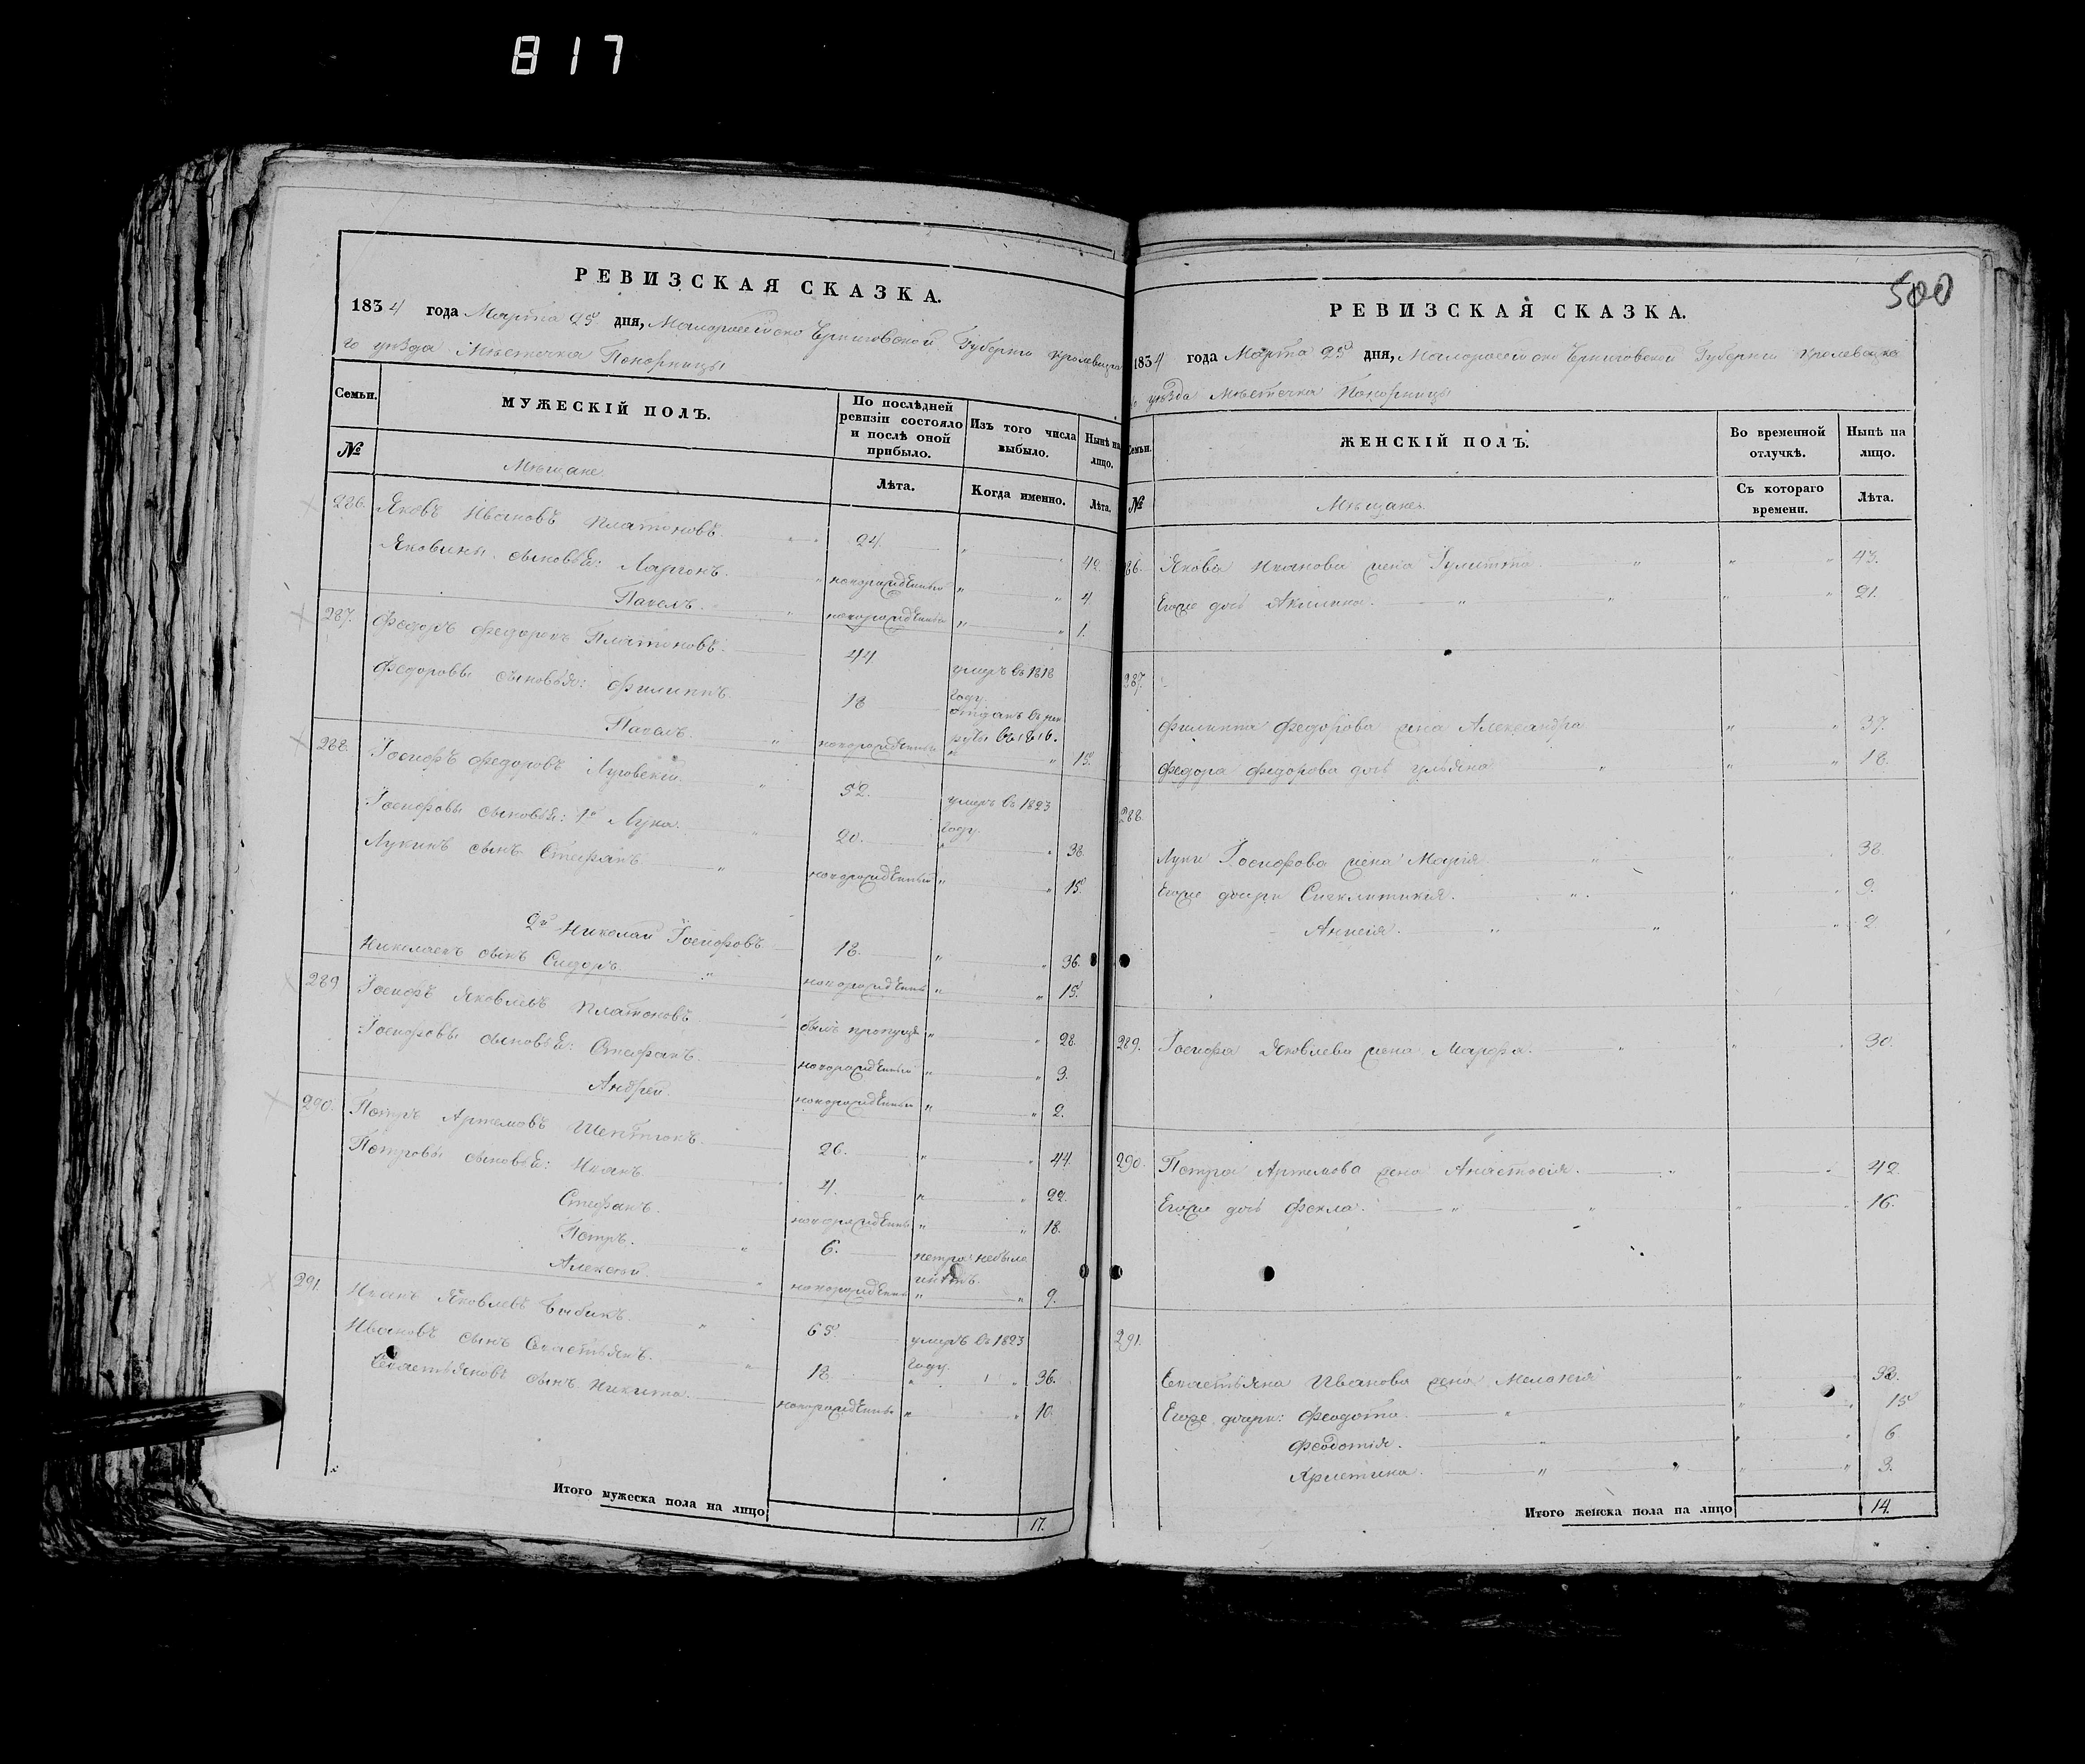 817
РЕВИЗСКАЯ СКАЗКА.
1834 года Марта 25 дня, Малоросcійско Черниговской Губерніи Кролевецка
го уѣзда Мѣстечка Понорницы
Семьи.
МУЖЕСКІЙ ПОЛЪ.
По послѣдней ревизіи состояло и послѣ оной прибыло.
Изъ того числа выбыло.
Нынѣ на лицо.
№
Мѣщане
Лѣта.
Когда именно.
Лѣта.
286. Яковъ Ивановъ Платоновъ 24. " " 42.
Яковины сыновья: Ларіонъ. " новорожденный " " 4
Павелъ. " новорожденный " " 1.
287. Федоръ Федоровъ Платоновъ. 44 умеръ въ 1818 году
Федоровы сыновья: Филиппъ 18 отданъ въ рекруты въ 1816.
Павелъ. " новорожденный " " 15.
288. Іосифъ Федоровъ Луговскій " 52. умеръ въ 1823 году.
Іосифовы сыновья: 1й Лука. " 20. " " 38.
Лукинъ сынъ Стефанъ. " новорожденный " " 15.
2й Николай Іосифовъ 18. " " 36.
Николаевъ сынъ Сидоръ. " новорожденный " " 15.
289 Іосифъ Яковлевъ Платоновъ былъ пропущенъ " " 28.
Іосифовы сыновья: Стефанъ. новорожденный " " 3.
Андрей новорожденный " " 2.
290. Петръ Артемовъ Шептюкъ. 26. " " 44.
Петровы сыновья: Иванъ " 4. " " 22.
Стефанъ. новорожденный " " 18.
Петръ. " 6.
Алексѣй. " новорожденный " " 9.
291. Иванъ Яковлевъ Бибикъ. " 65 умеръ въ 1823 году.
Ивановъ сынъ Севастьянъ. " 18 " " 36.
Севастьяновъ сынъ Никита. новорожденный " " 10.
Итого мужеска пола на лицо 17.
500
РЕВИЗСКАЯ СКАЗКА.
1834 года Марта 25 дня, Малоросcійско Черниговской Губерніи Кролевецка
го уѣзда Мѣстечка Понорницы
Семьи.
ЖЕНСКІЙ ПОЛЪ.
Во временной отлучкѣ.
Нынѣ на лицо.
№
Мѣщане.
Съ котораго времени.
Лѣта.
286. Якова Иванова жена Гулитта. " " " 43.
Егоже дочь Акилина. " " " " 21.
287.
Филиппа Федорова жена Александра " " 37.
Федора Федорова дочь Ульяна " " " 18.
288.
Луки Іосифова жена Марія " " " 38.
Егоже дочери Синклитикія. " " " 9.
Анисія. " " " 2.
289. Іосифа Яковлева жена Марфа. " " " 30.
290. Петра Артемова жена Анастасія. " " 42.
Егоже дочь Фекла. " " " " 16.
291.
Севастьяна Иванова жена Меланія " " 38.
Егоже дочери: Феодота. " " " 15
Феодотія. " " " 6
" " " " 3.
Итого женска пола на лицо 14.